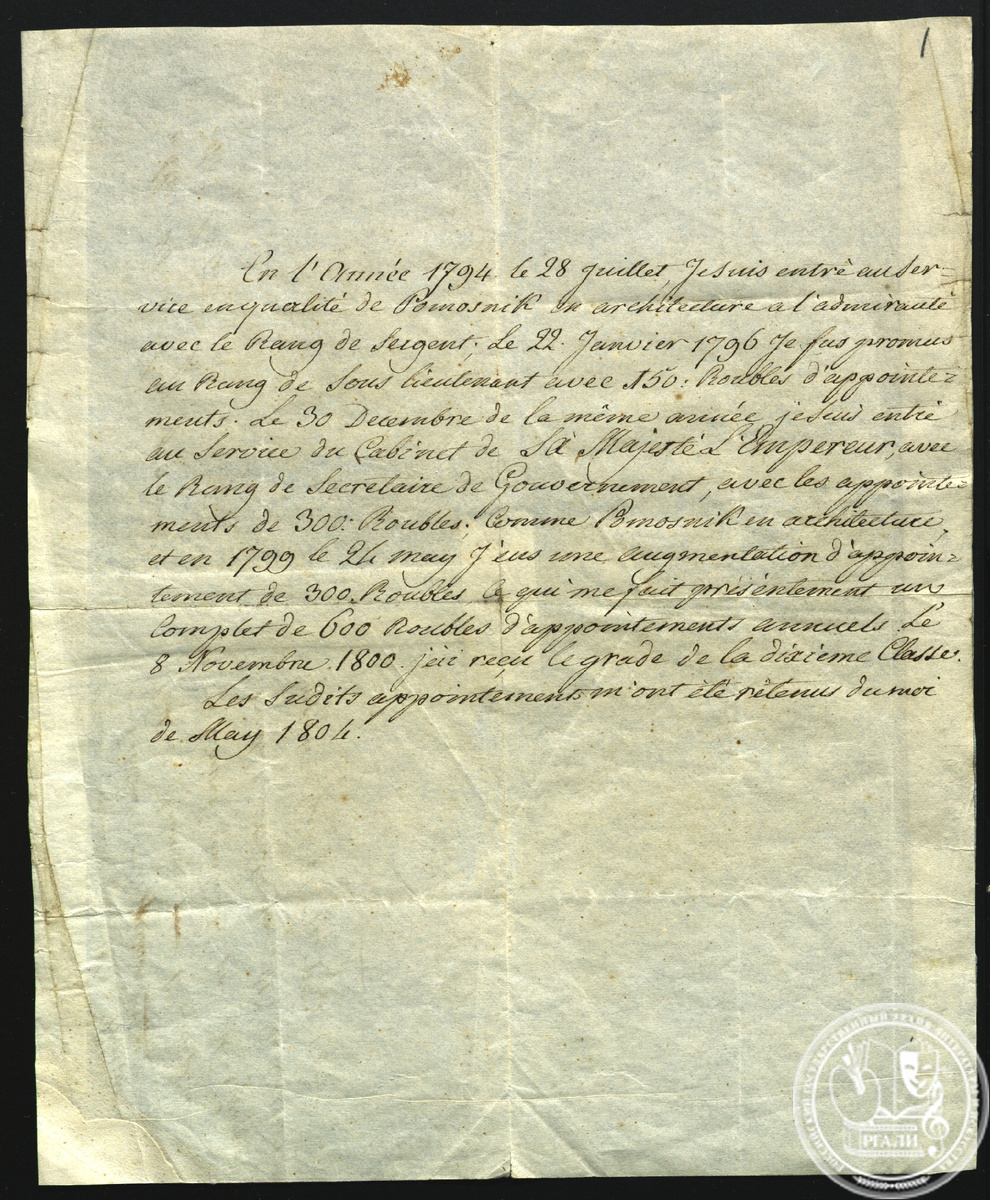 1
En l'Année 1794 le 28 Juillet, Je suis entré au Ser-
vice en qualité de Pomosnik en architecture a l'admirauté
avec le Rang de Sergent; Le 22. Janvier 1796 Je fus promus
au Rang de Sous lieutenant avec 150: Roubles d'appointe-
ments. Le 30 Decembre de la même année je suis entré
au Service du Cabinet de Sa Majesté L'Empereur, avec
le Rang de Secretaire de Gouvernement, avec les appointe-
ments de 300: Roubles; Comme Pomosnik en architecture,
et en 1799 le 24 may J'eus une augmentation d'appoin-
tement de 300. Roubles ce qui me fait présentement un
Complet de 600 Roubles d'appointements annuels. Le
8 Novembre 1800. j'ai reçu le grade de la dixieme Classe.
Les Sudits appointements m'ont été rétenus du moi
de May 1804.
РОССИЙСКИЙ ГОСУДАРСТВЕННЫЙ АРХИВ ЛИТЕРАТУРЫ И ИСКУССТВА
РГАЛИ